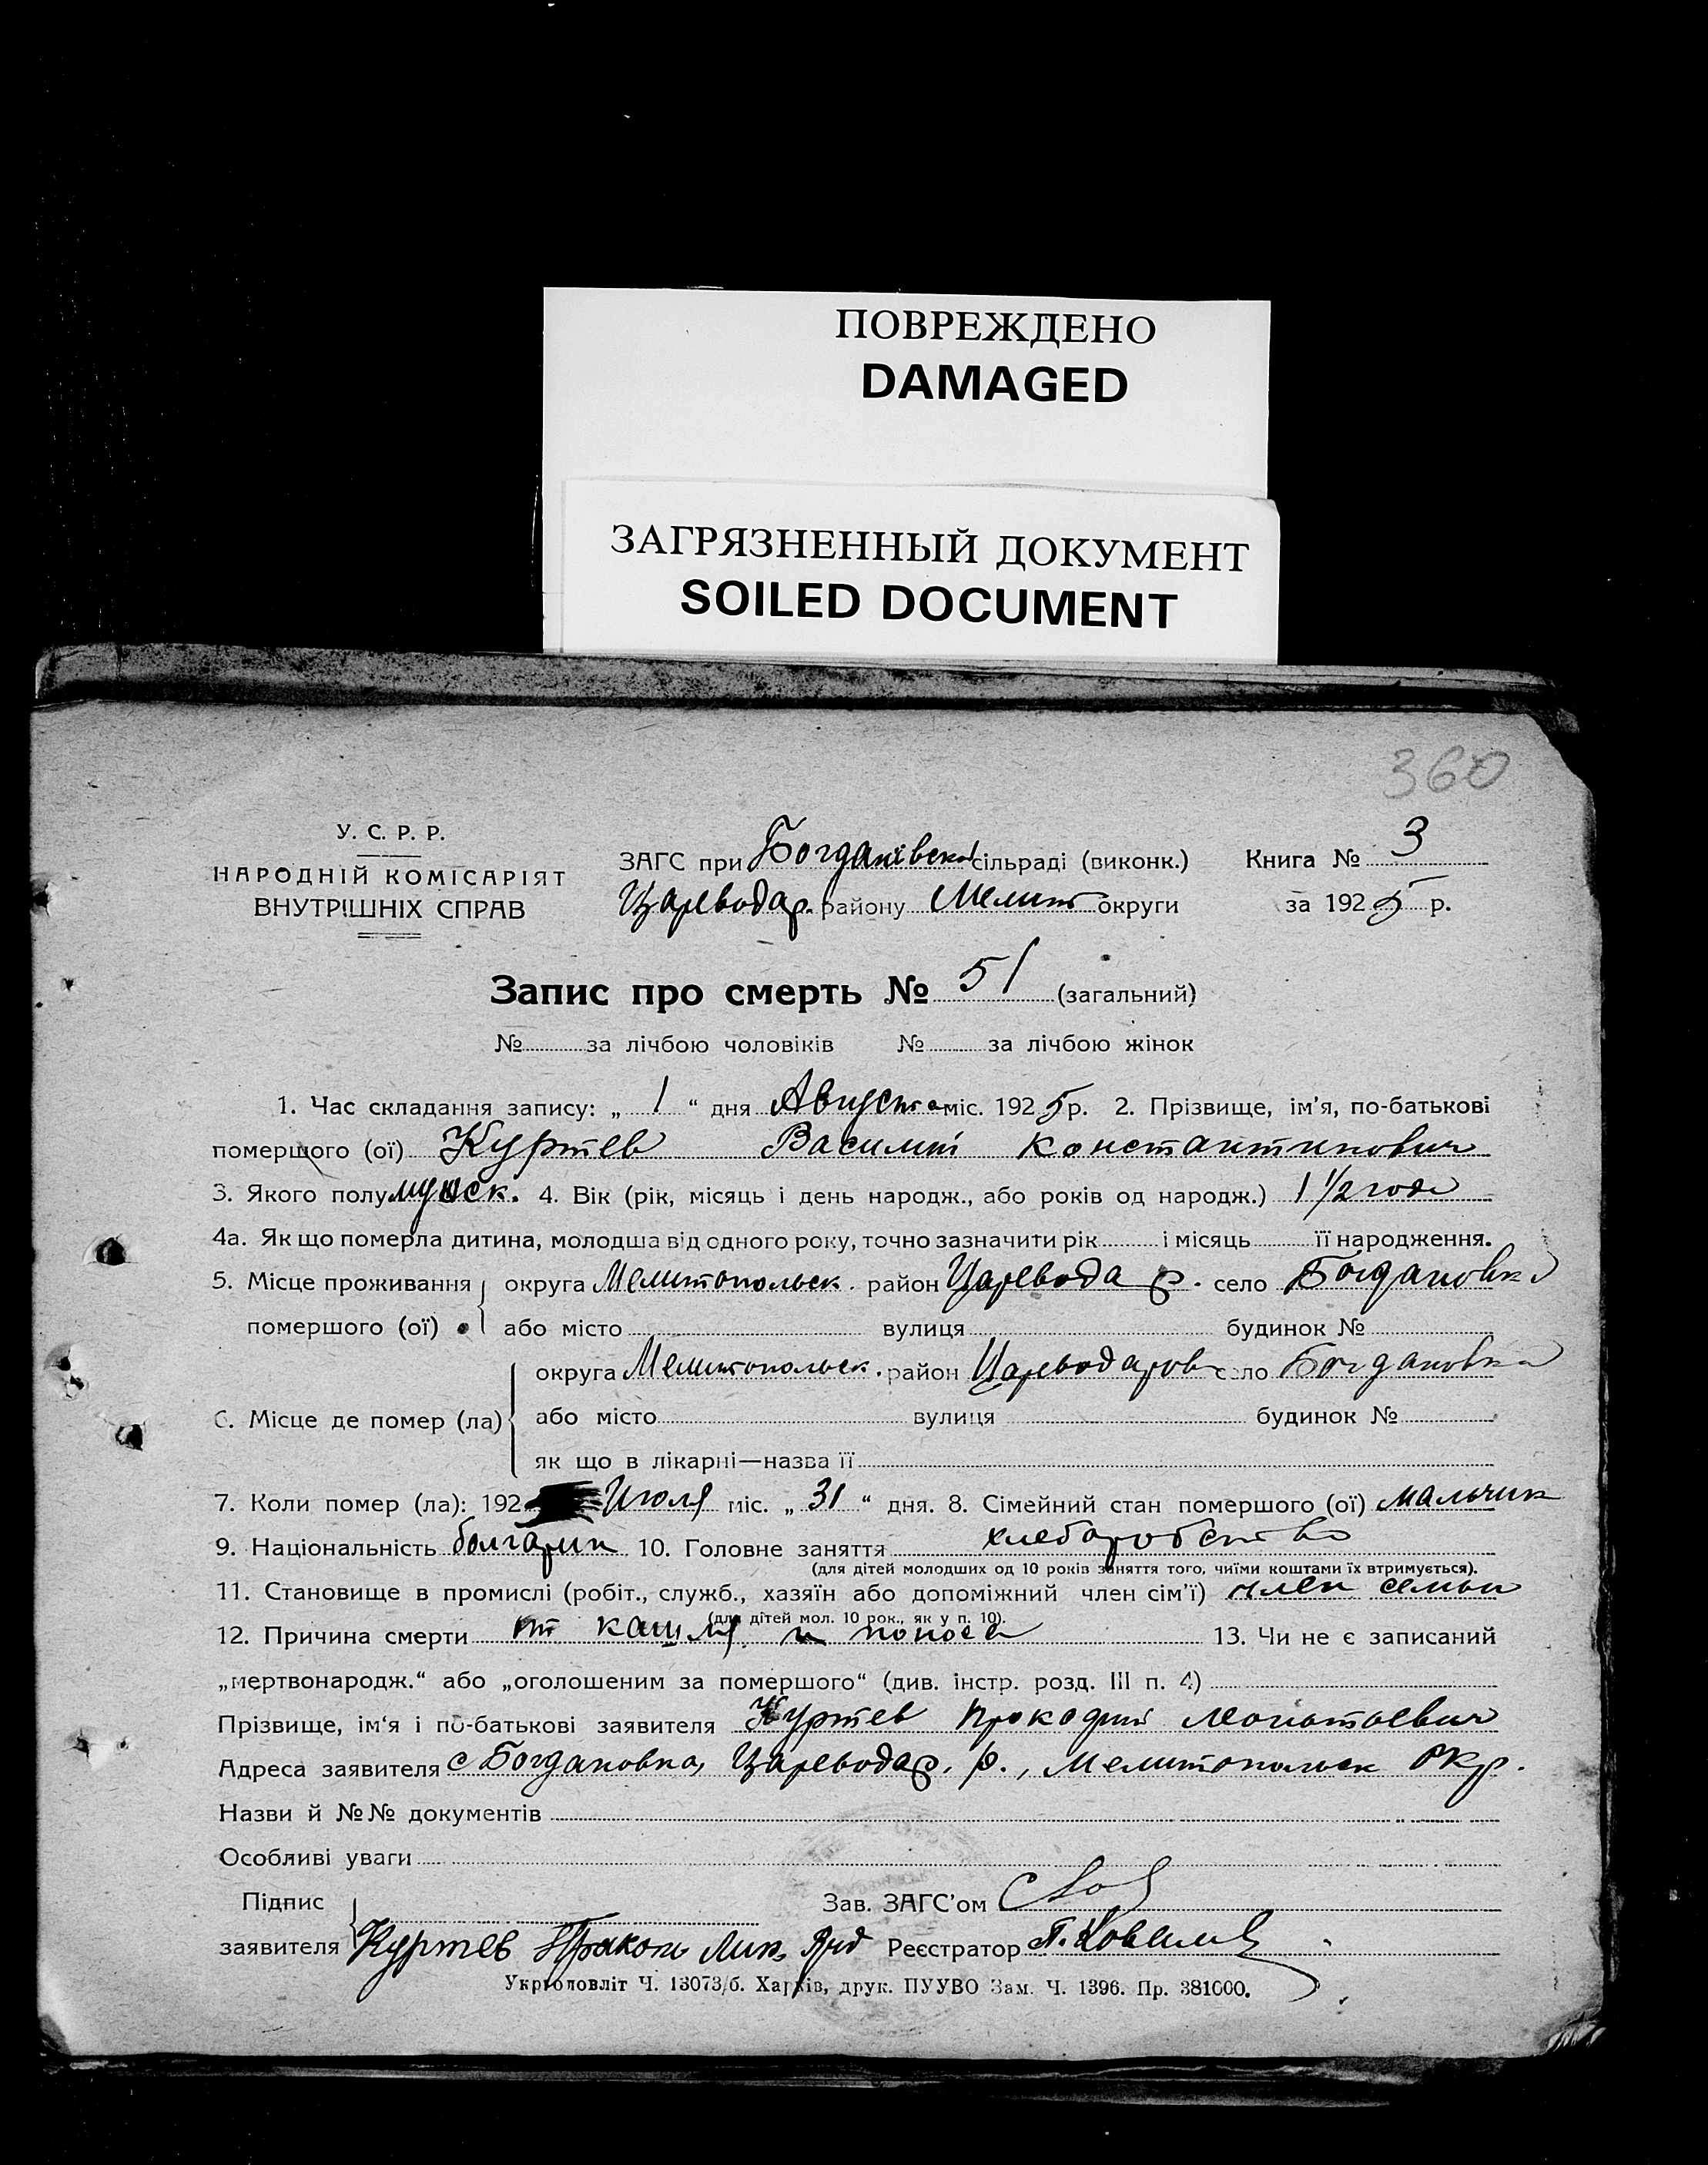 ПОВРЕЖДЕНО
DAMAGED
ЗАГРЯЗНЕННЫЙ ДОКУМЕНТ
SOILED DOCUMENT
360
У. С. Р. Р.
НАРОДНІЙ КОМІСАРІЯТ
ВНУТРІШНІХ СПРАВ
ЗАГС при Богданівской сільраді (виконк.) Книга № 3
Цареводар. району Мелит округи за 1925 р.
Запис про смерть № 51 (загальний)
№ за лічбою чоловіків № за лічбою жінок
1. Час складання запису: „ 1 “ дня Августа міс. 1925 р. 2. Прізвище, ім'я, по-батькові
померщого (ої) Куртев Василий Константинович
3. Якого полу мужск. 4. Вік (рік, місяць і день народж., або років од народж.) 1 1/2 года
4а. Як що померла дитина, молодша від одного року, точно зазначити рік і місяць її народження.
5. Місце проживання округа Мелитопольск. район Цареводар. село Богдановка
помершого (ої) або місто вулиця будинок №
округа Мелитопольск. район Цареводаров село Богдановка
6. Місце де помер (ла) або місто вулиця будинок №
як що в лікарні—назва її
7. Коли помер (ла): 192 Июля міс. „ 31 “ дня. 8. Сімейний стан помершого (ої) мальчик
9. Національність болгарин 10. Головне заняття хлебаробство
(для дітей молодших од 10 років заняття того, чиїми коштами їх втримується).
11. Становище в промислі (робіт., служб., хазяїн або допоміжний член сім'ї) член семьи
(для дітей мол. 10 рок., як у п. 10).
12. Причина смерти от кашля и поноса 13. Чи не є записаний
„мертвонародж.“ або „оголошеним за помершого“ (див. інстр. розд. III п. 4)
Прізвище, ім'я і по-батькові заявителя Куртев
Адреса заявителя с Богдановка, Цареводар. р., Мелитопольск окр.
Назви й №№ документів
Особливі уваги
Підпис Зав. ЗАГС'ом
заявителя Куртев Реєстратор
Укрголовліт Ч. 13073/б. Харків, друк. ПУУВО Зам. Ч. 1396. Пр. 381000.